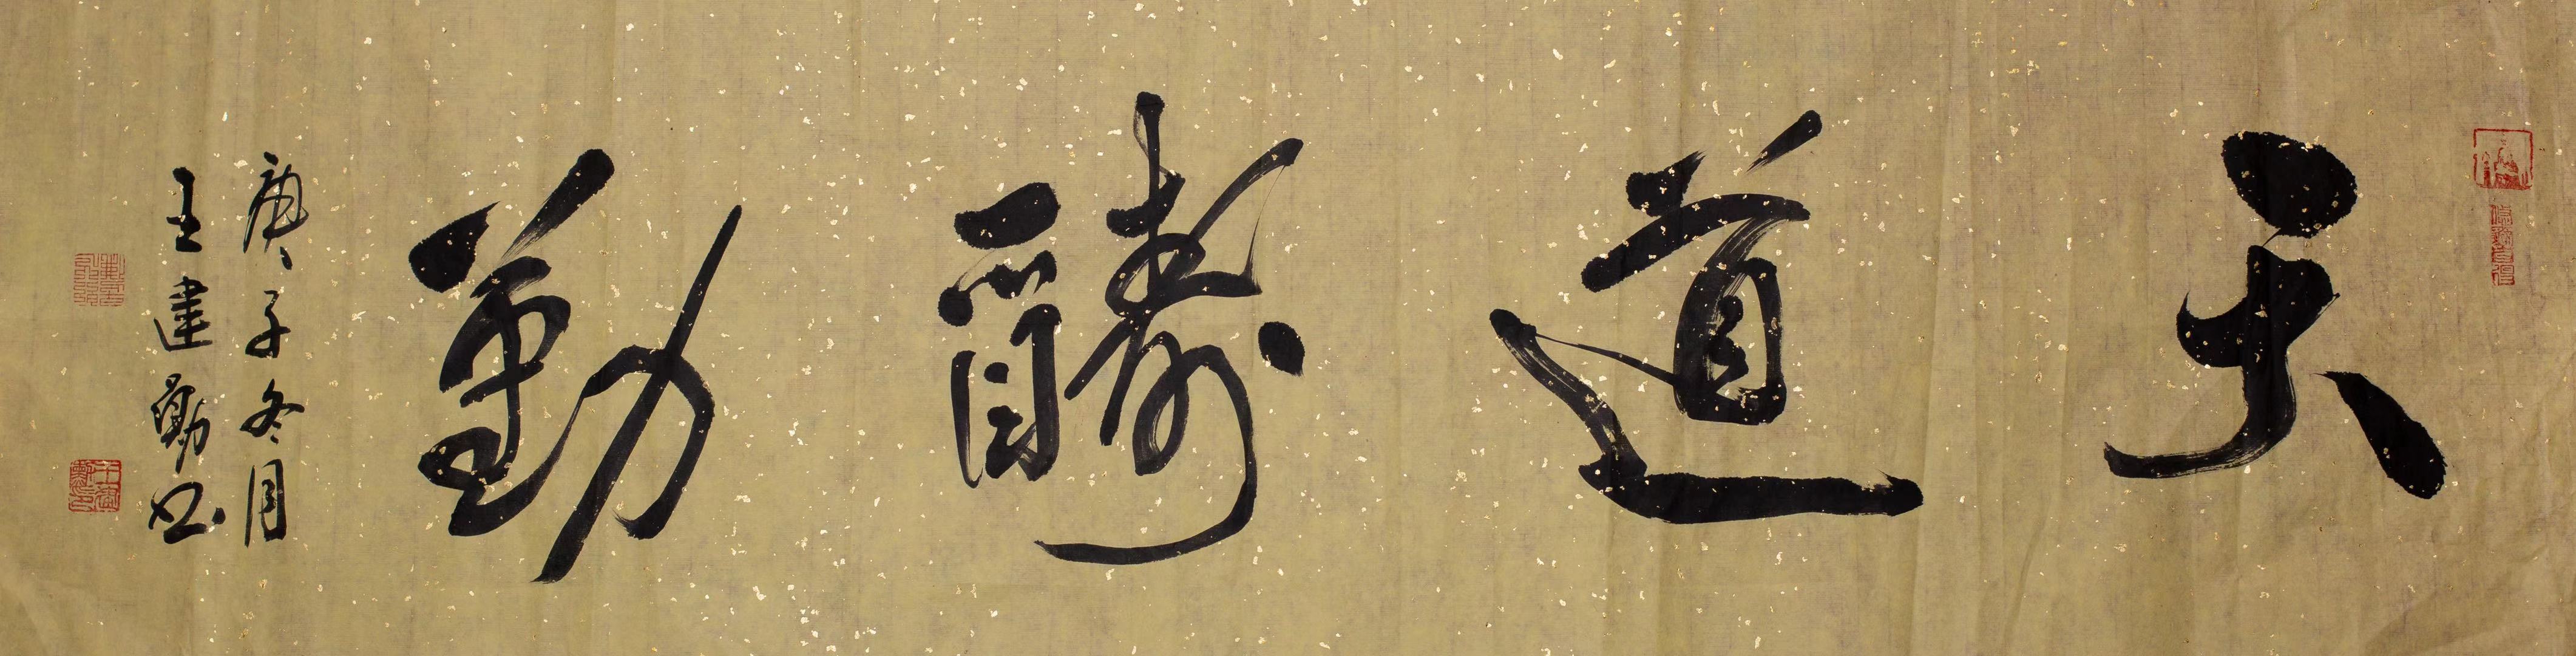 天道酬勤
庚子冬月
王建勛书